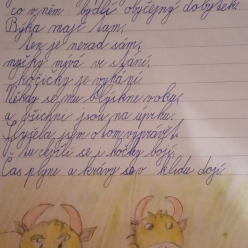 co v něm bydlí obyčejný dobytek.
Býka mají tam,
ten je nerad sám,
myšky mívá ve stáji,
kočičky je vyhání.
Někdy se mu blýskne v oku,
a všichni jsou na úprku.
Slyšela jsem o tom vyprávět
se i kočky bojí.
Čas plyne a krávy se v klidu dojí